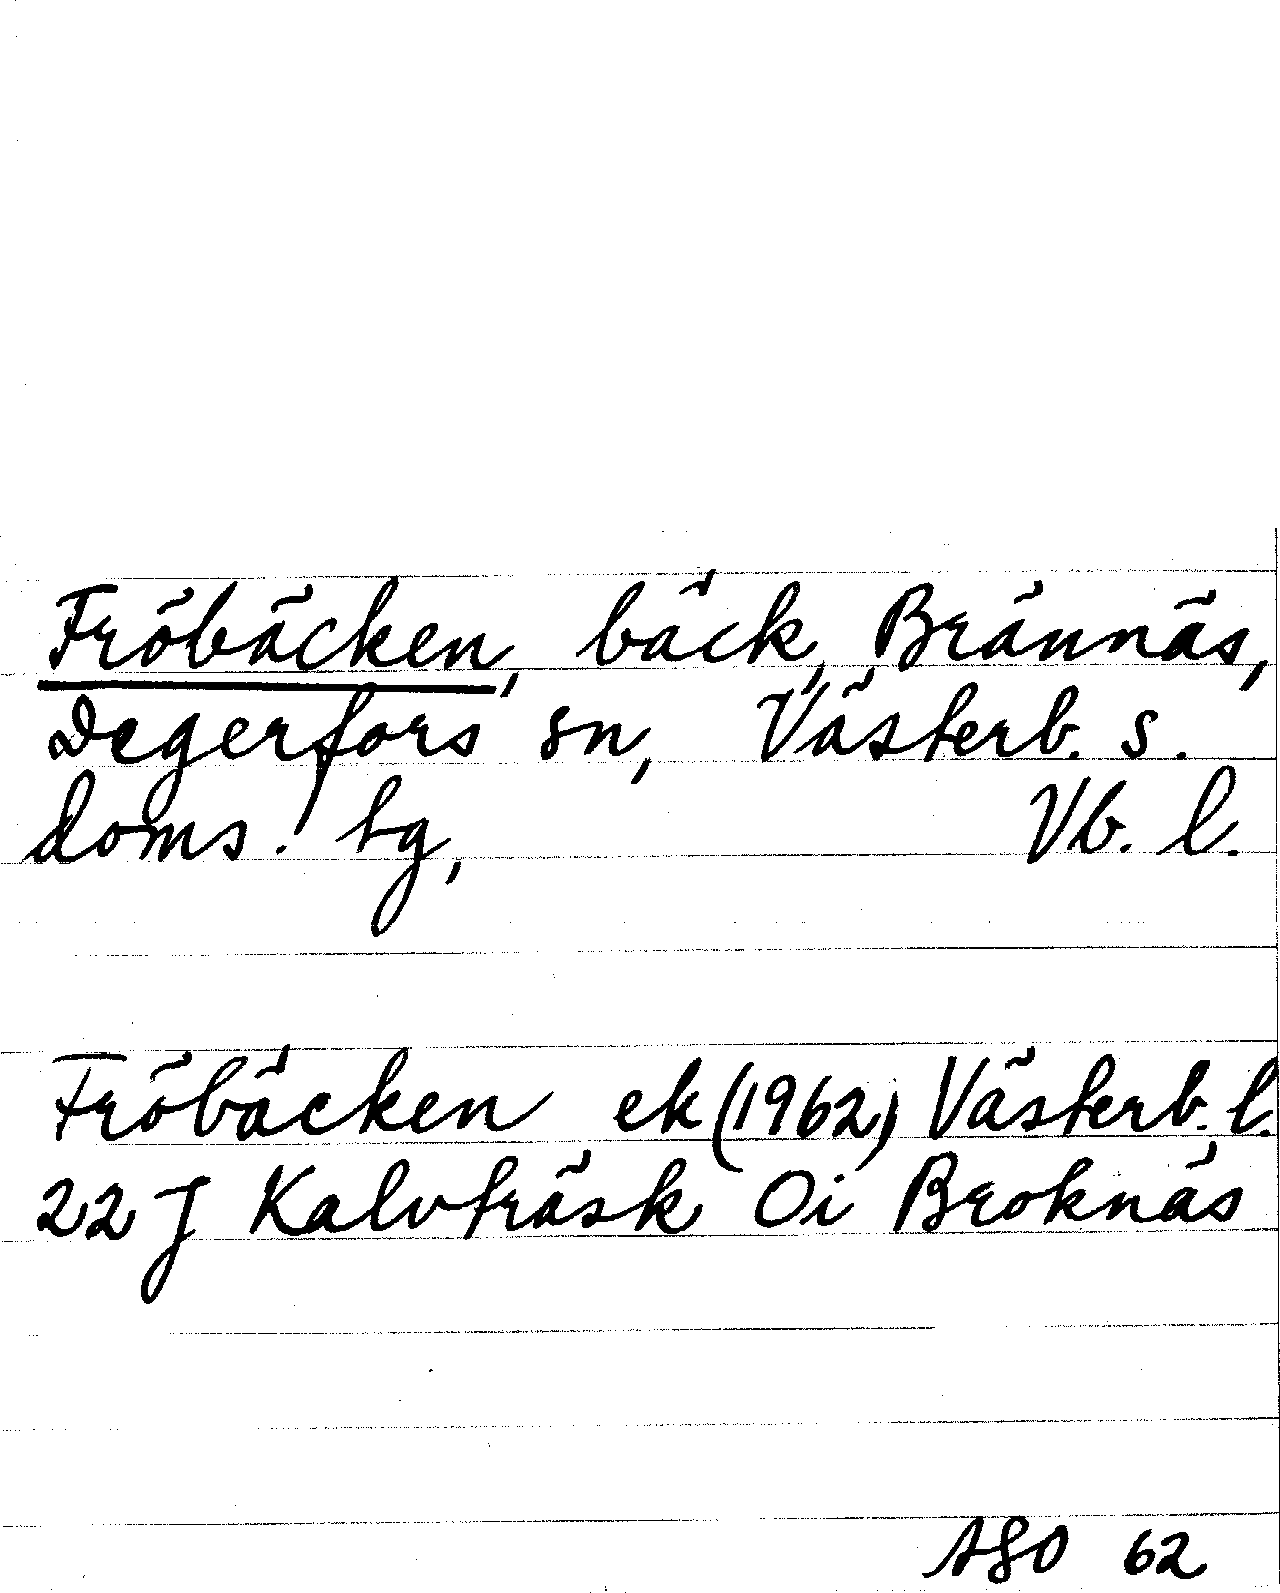 Fröbäcken, bäck, Brännäs,
Degerfors sn, Västerb. s.
doms. tg, Vb. l.
Fröbäcken ek (1962) Västerb. l.
22 J Kalvträsk Oi Broknäs
ASO 62